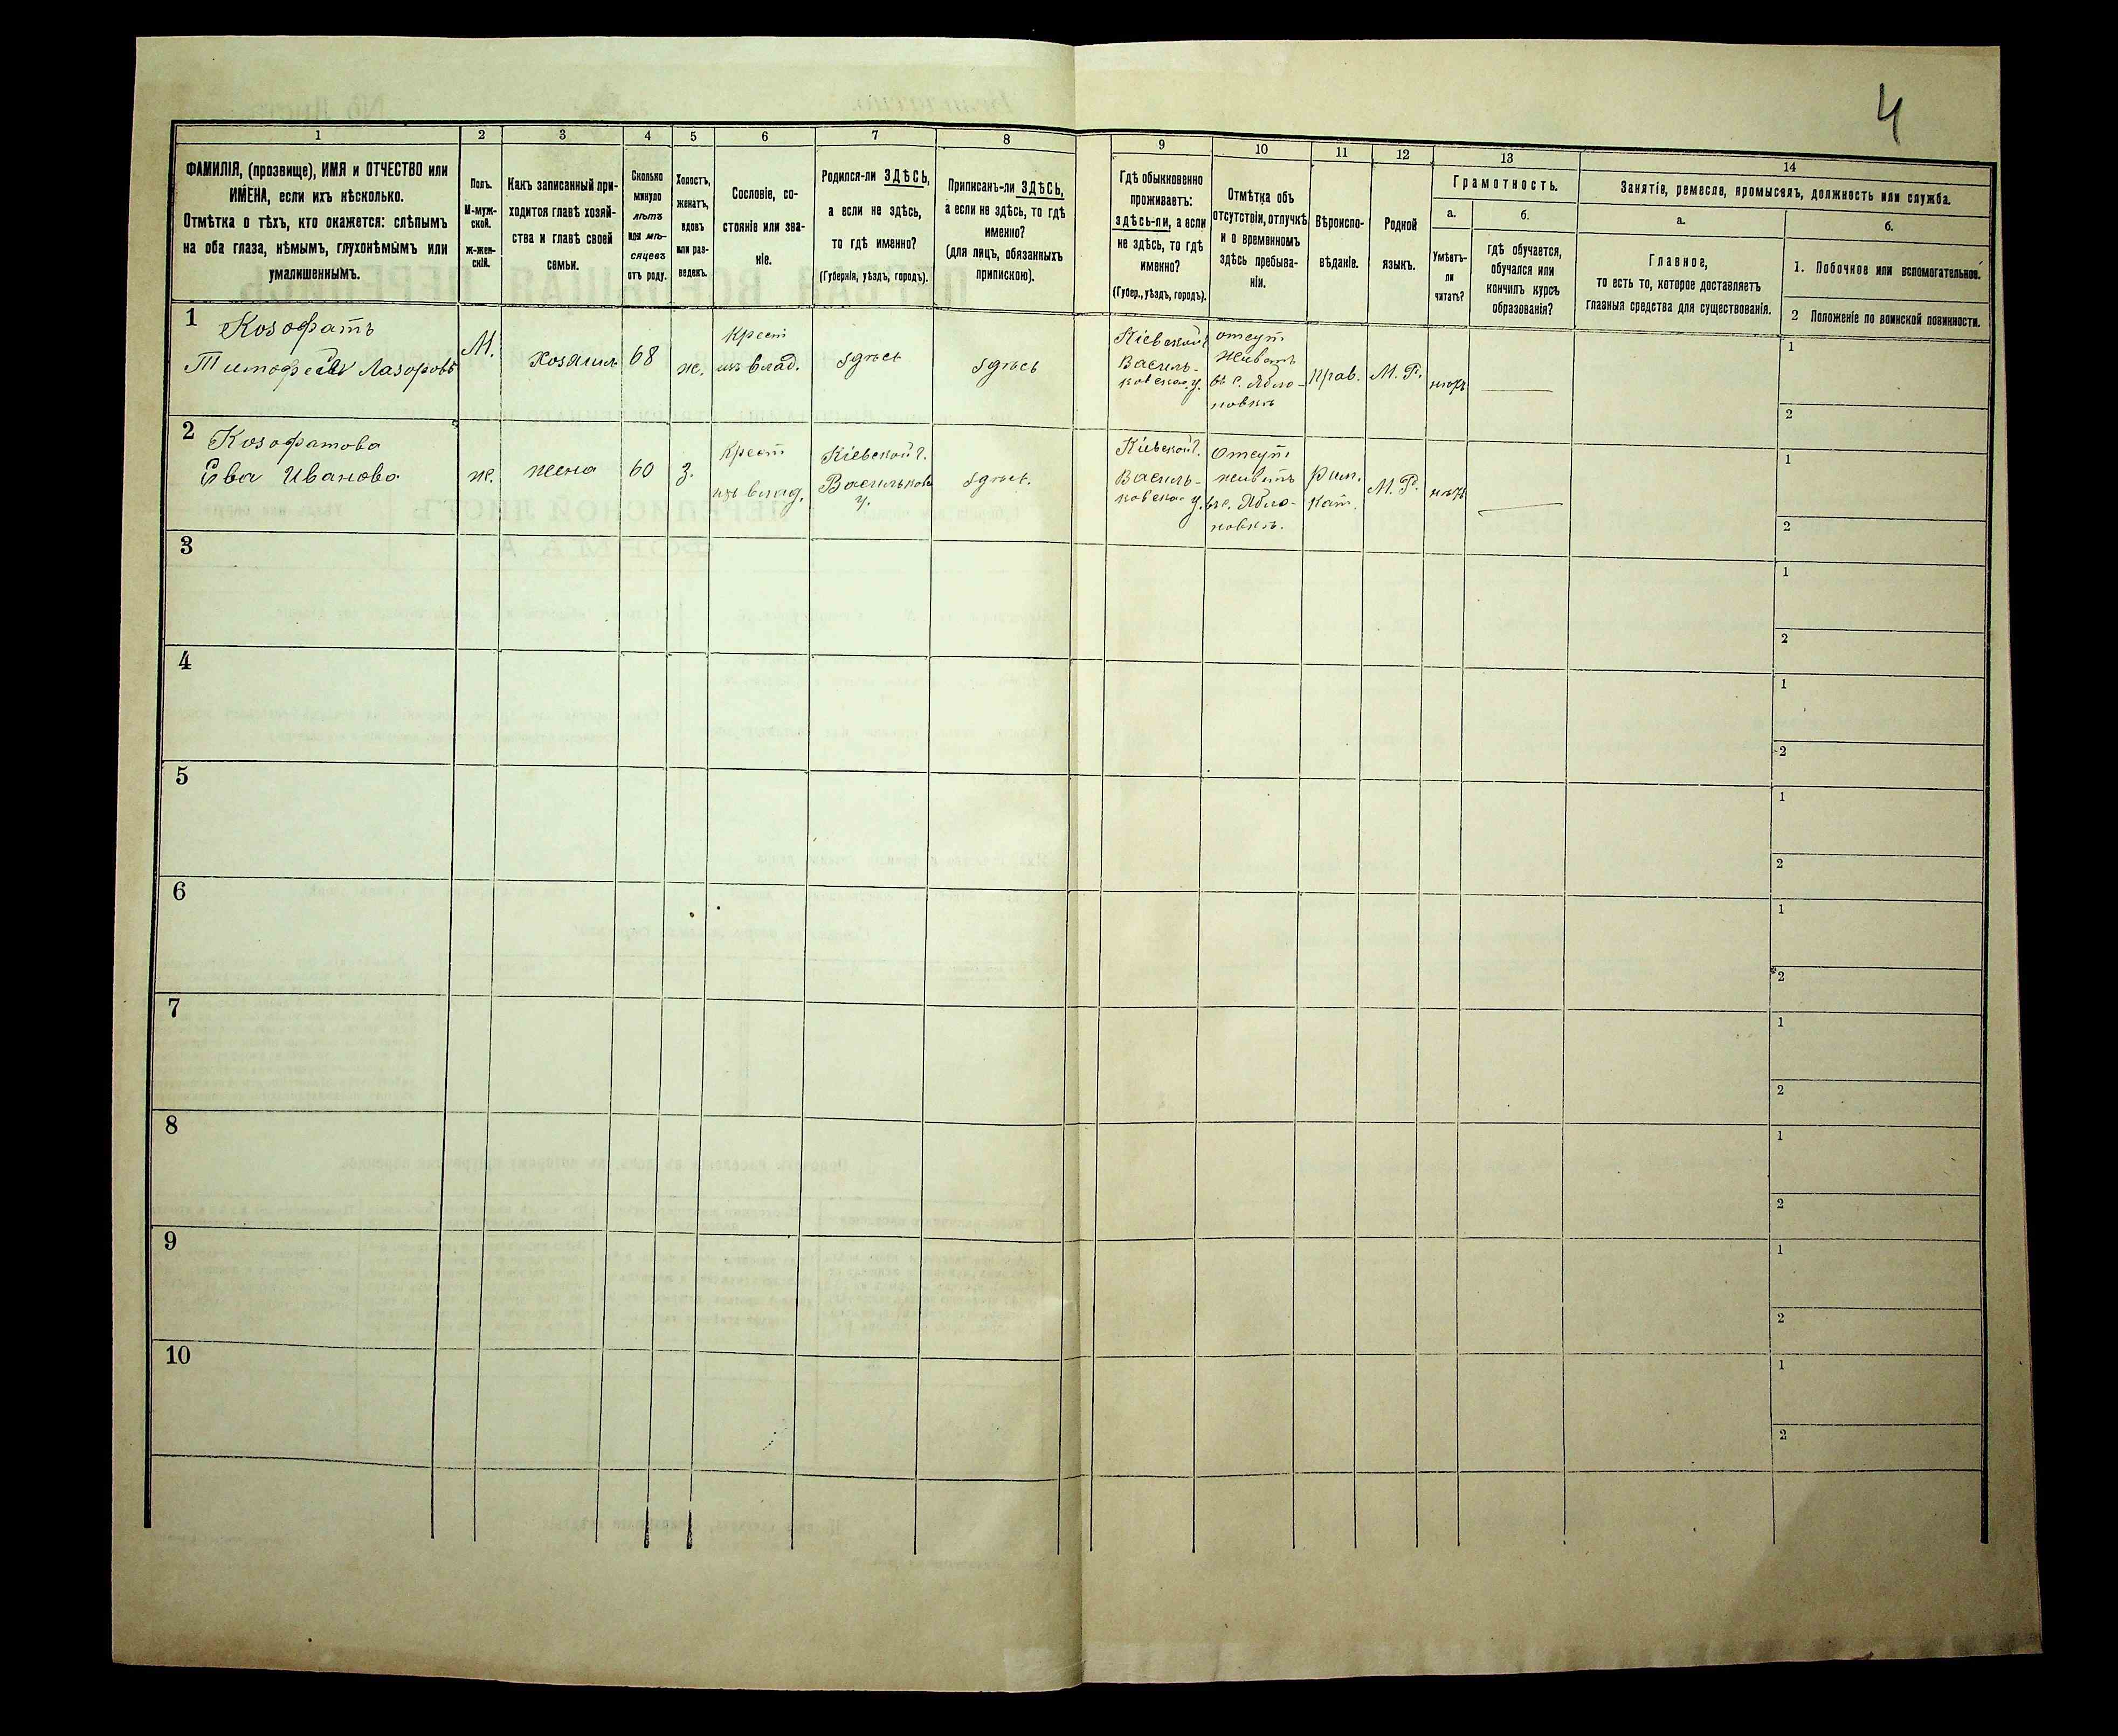 4
1 2 3 4 5 6 7 8 9 10 11 12 13 14
ФАМИЛІЯ, (прозвище), ИМЯ и ОТЧЕСТВО или
ИМЕНА, если ихъ нѣсколько.
Отмѣтка о тѣхъ, кто окажется: слѣпымъ
на оба глаза, нѣмымъ, глухонѣмымъ или
умалишеннымъ.
Полъ.
М-муж-
ской.
Ж-жен-
скій.
Какъ записанный при-
ходится главѣ хозяй-
ства и главѣ своей
семьи.
Сколько
минуло
лѣтъ
или мѣ-
сяцевъ
отъ роду.
Холостъ,
женатъ,
вдовъ
или раз-
веденъ.
Сословіе, со-
стояніе или зва-
ніе.
Родился-ли ЗДѢСЬ,
а если не здѣсь,
то гдѣ именно?
(Губернія, уѣздъ, городъ).
Приписанъ-ли ЗДѢСЬ,
а если не здѣсь, то гдѣ
именно?
(для лицъ, обязанныхъ
припискою).
Гдѣ обыкновенно
проживаетъ:
здѣсь-ли, а если
не здѣсь, то гдѣ
именно?
(Губер., уѣздъ, городъ).
Отмѣтка объ
отсутствіи, отлучкѣ
и о временномъ
здѣсь пребыва-
ніи.
Вѣроиспо-
вѣданіе.
Родной
языкъ.
Грамотность.
а.
Умѣетъ-
ли
читать?
б.
гдѣ обучается,
обучался или
кончилъ курсъ
образованія?
Занятіе, ремесло, промыселъ, должность или служба.
а.
Главное,
то есть то, которое доставляетъ
главныя средства для существованія.
б.
1. Побочное или вспомогательное.
2 Положеніе по воинской повинности.
1
Козофатъ
Тимофей Лазоровъ
М.
Хозяинъ
68
ж.
Крест
изъ влад.
здѣсь
здѣсь
Кіевской г.
Василь-
ковскаго у.
отсут
живетъ
въ с. Ябло-
новкѣ
прав.
М. Р.
нѣтъ
1
2
2
Козофатова
Ева Иванова
ж.
жена
60
з.
Крест
изъ влад.
Кіевской г.
Васильков
у.
здѣсь.
Кіевской г.
Василь-
ковскаго у.
Отсут
живетъ
въ с. Ябло-
новкѣ.
рим.
кат.
М. Р.
нѣтъ
1
2
3
1
2
4
1
2
5
1
2
6
1
2
7
1
2
8
1
2
9
1
2
10
1
2